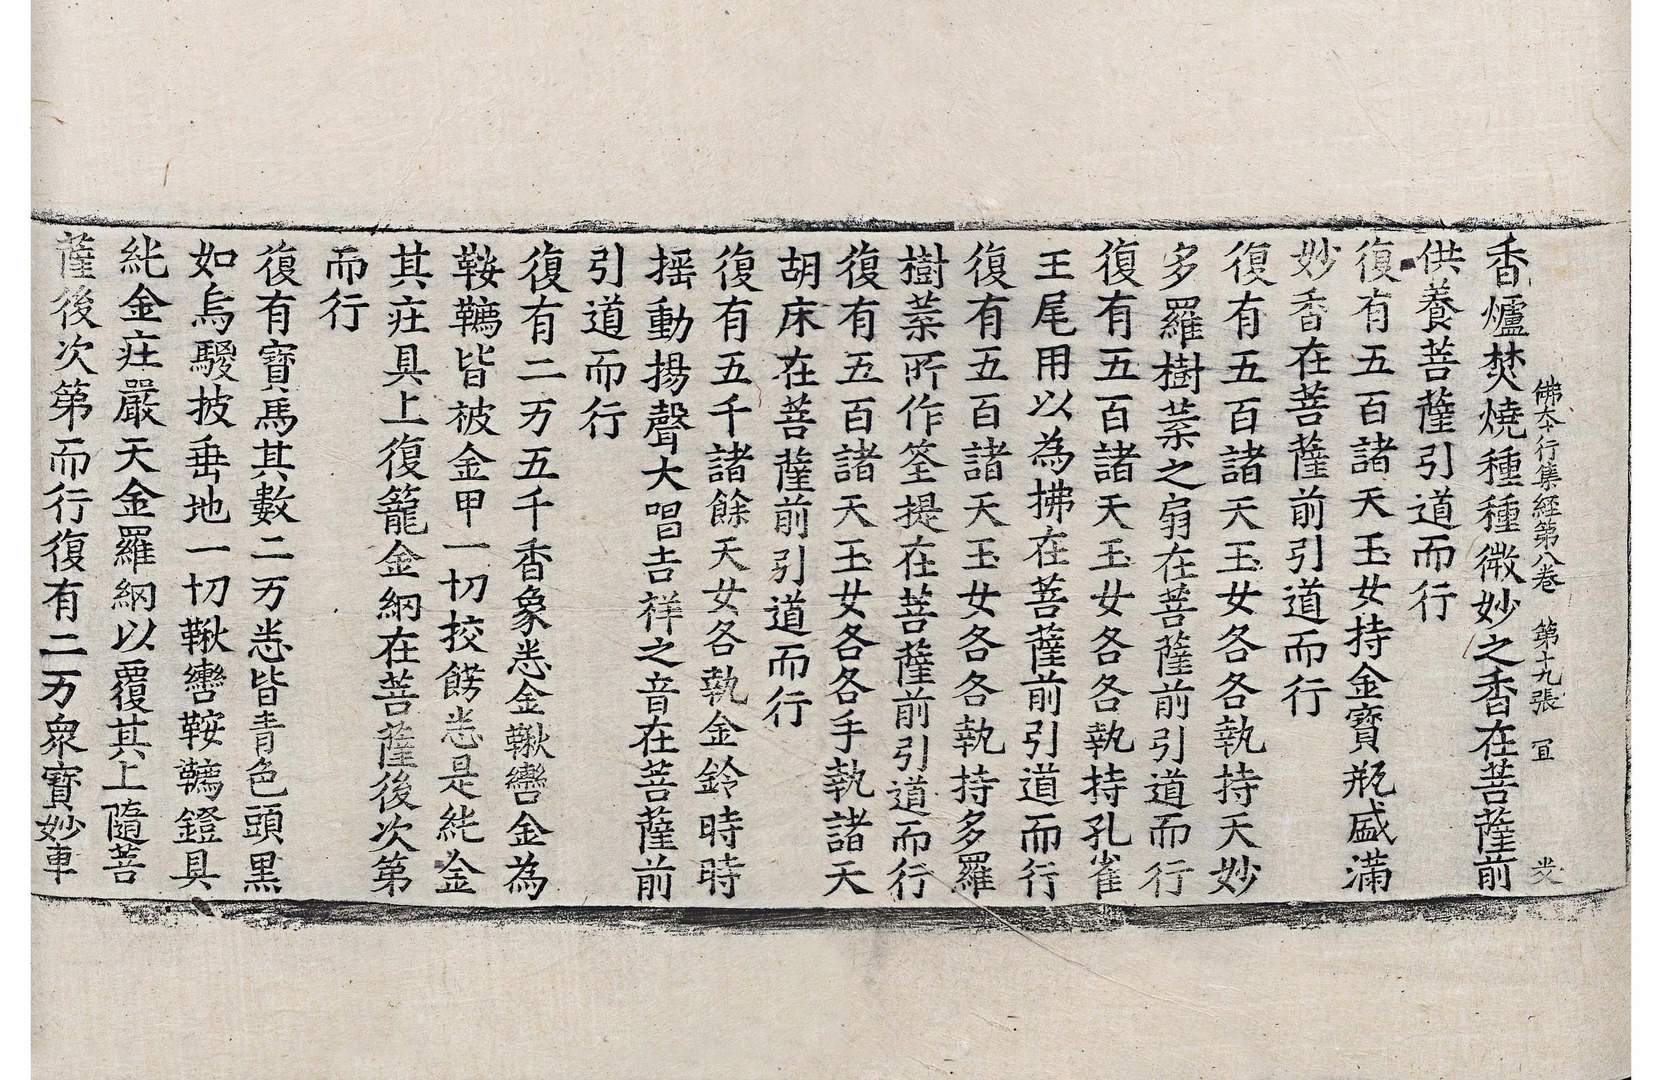 佛本行集經第八卷　第十九張　冝　㳄
香爐焚燒種種微妙之香在菩薩前
供養菩薩引道而行
復有五百諸天玉女持金寶瓶盛滿
妙香在菩薩前引道而行
復有五百諸天玉女各各執持天妙
多羅樹葉之扇在菩薩前引道而行
復有五百諸天玉女各各執持孔雀
王尾用以為拂在菩薩前引道而行
復有五百諸天玉女各各執持多羅
樹葉所作筌提在菩薩前引道而行
復有五百諸天玉女各各手執諸天
胡床在菩薩前引道而行
復有五千諸餘天女各執金鈴時時
揺動揚聲大唱吉祥之音在菩薩前
引道而行
復有二万五千香象悉金鞦轡金為
鞍韉皆被金甲一切挍餝悉是純金
其疘具上復籠金網在菩薩後次第
而行
復有寶馬其數二万悉皆青色頭黒
如烏騣披垂地一切鞦轡鞍韉鐙具
純金疘嚴天金羅網以覆其上隨菩
薩後次第而行復有二万衆寶妙車